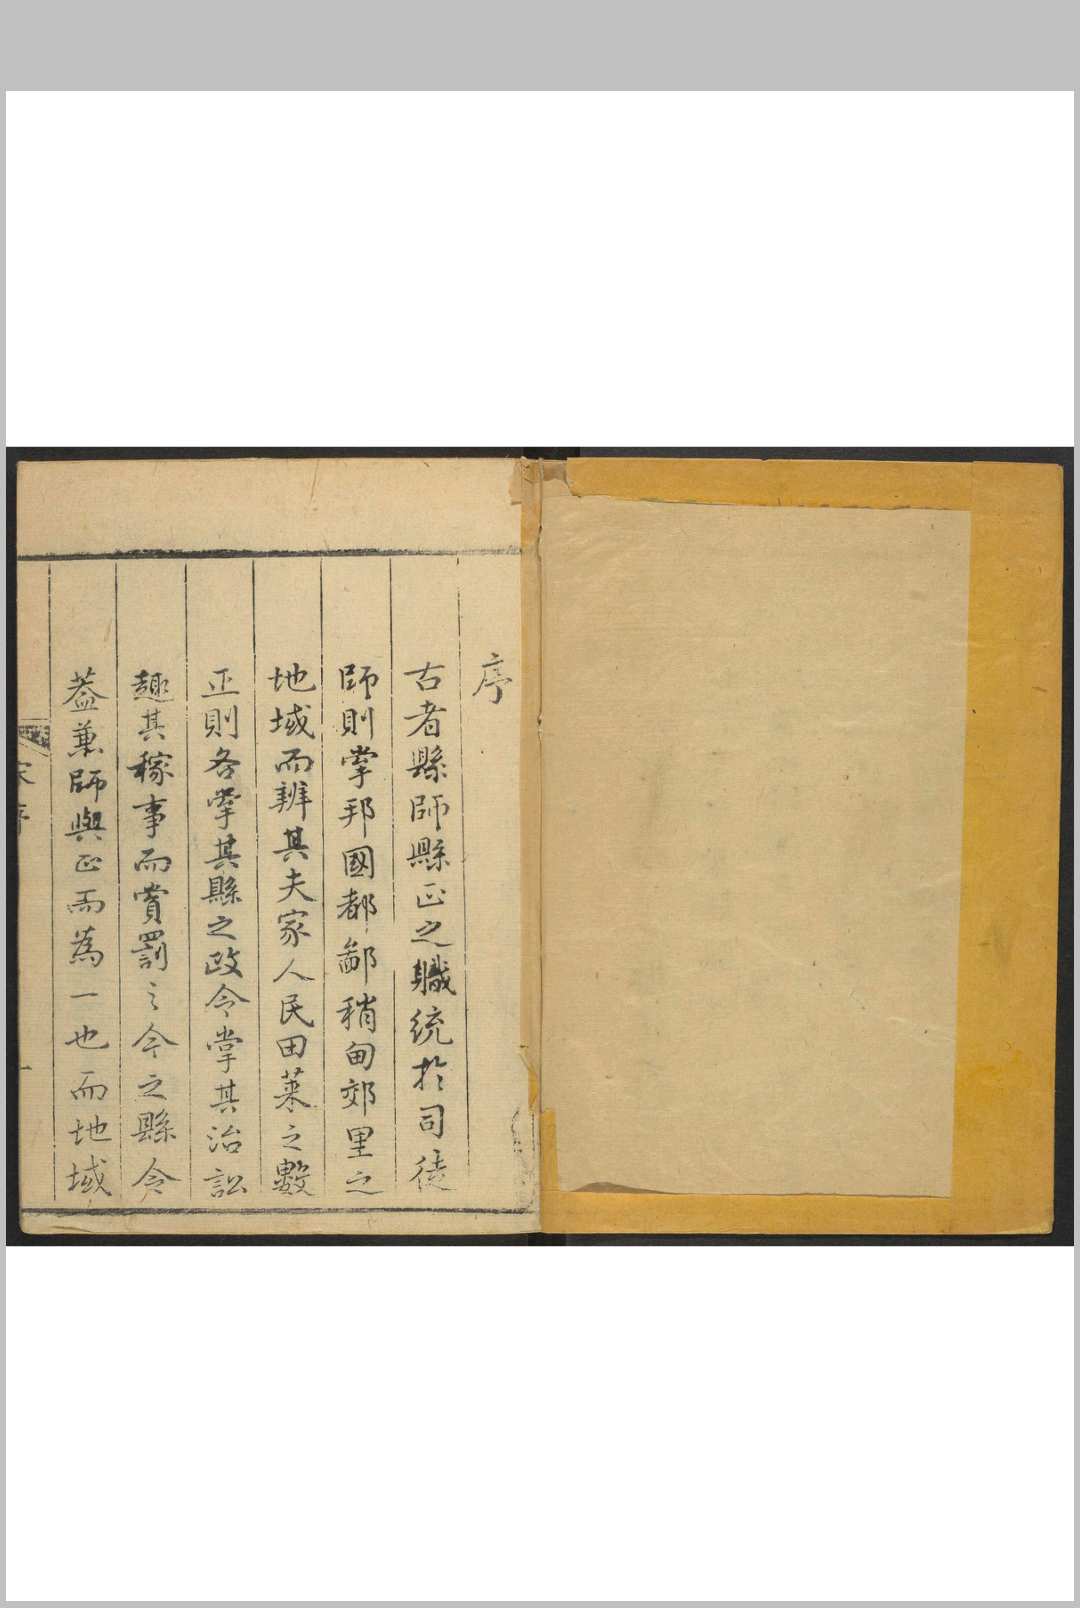 序
古者縣師縣正之職統於司徒
師則掌邦國都鄙稍甸郊里之
地域而辨其夫家人民田萊之數
正則各掌其縣之政令掌其治訟
趣其稼事而賞罰之今之縣令
葢兼師與正而為一也而地域